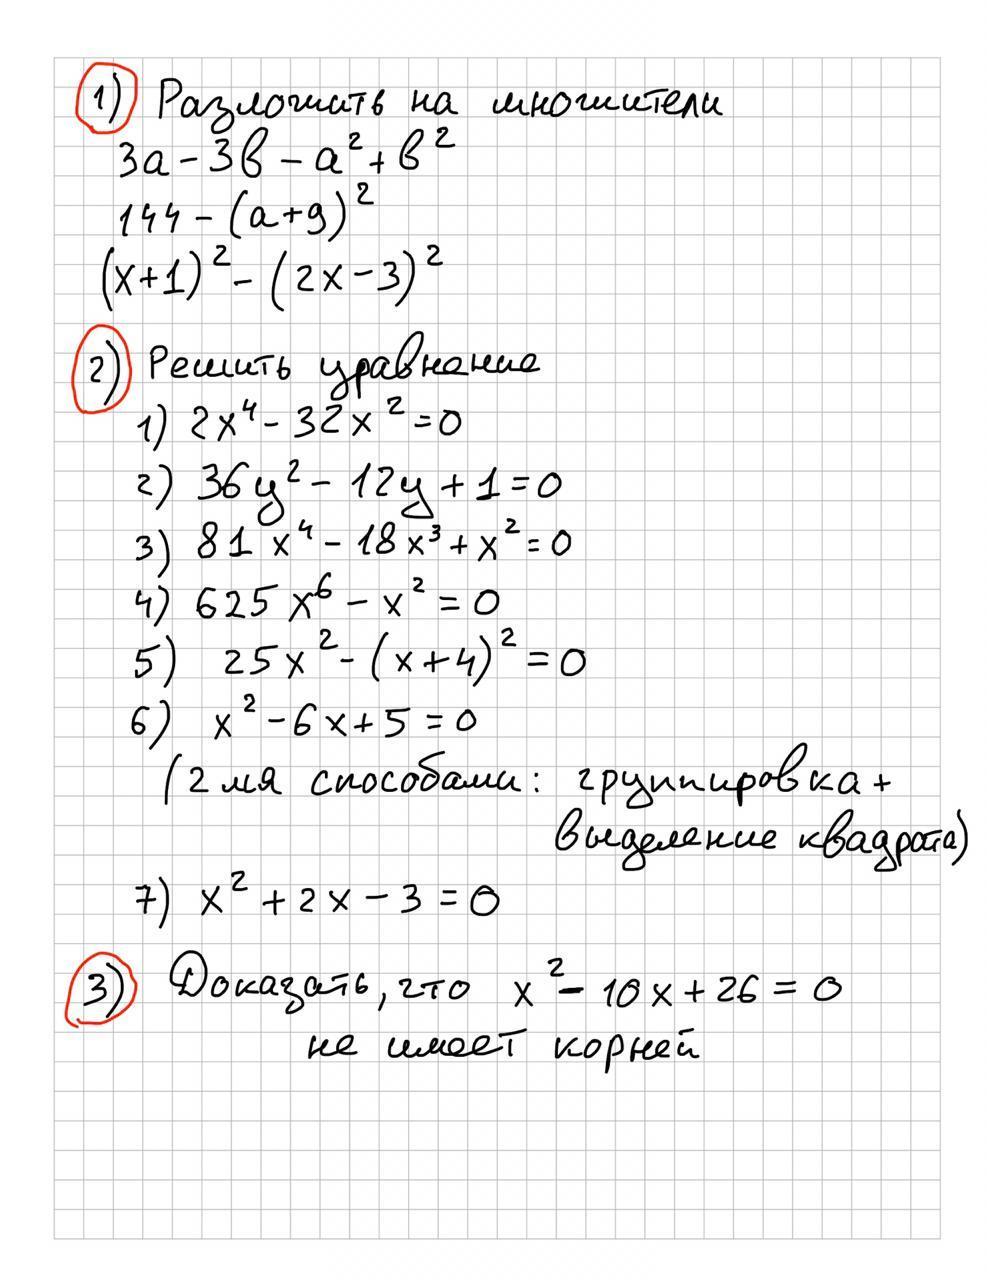 1) Разложить на множители
3a - 3b - a² + b²
144 - (a+9)²
(x+1)² - (2x-3)²
2) Решить уравнение
1) 2x⁴ - 32x² = 0
2) 36y² - 12y + 1 = 0
3) 81x⁴ - 18x³ + x² = 0
4) 625x⁶ - x² = 0
5) 25x² - (x+4)² = 0
6) x² - 6x + 5 = 0
(2мя способами: группировка +
выделение квадрата)
7) x² + 2x - 3 = 0
3) Доказать, что x² - 10x + 26 = 0
не имеет корней